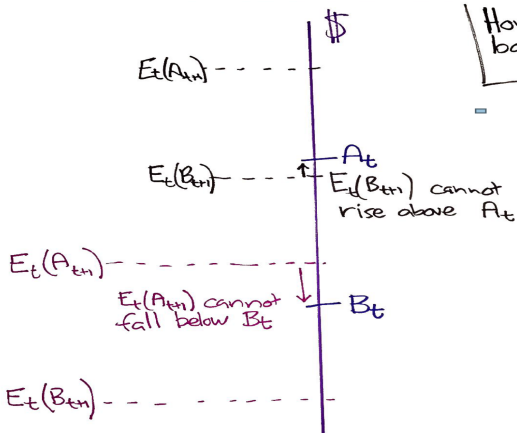 $
How
E_t(A_{t+1})
A_t
E_t(B_{t+1})
E_t(B_{t+1}) cannot
rise above A_t
E_t(A_{t+1})
E_t(A_{t+1}) cannot
fall below B_t
B_t
E_t(B_{t+1})